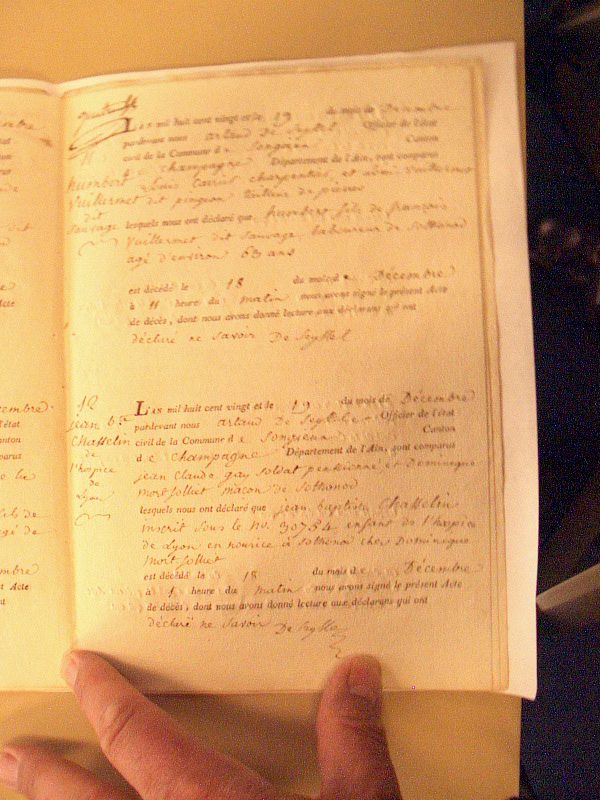 L'AN mil huit cent vingt et le 19 du mois de Décembre
pardevant nous artaud De Seyssel Officier de l'état
civil de la Commune de Songieu Canton
de champagne Département de l'Ain, sont comparus
Louis Carrit charpentier, et aimé Vuillermet
11
humbert
Vuillermet
dit
Sauvage
dit pingeon tailleur de pierres
lesquels nous ont déclaré que humbert fils de françois
Vuillermet dit Sauvage laboureur de Sothonod
agé d'environ 63 ans
est décédé le 18 du mois de Décembre
à 11 heure du matin nous avons signé le présent Acte
de décès, dont nous avons donné lecture aux déclarans qui ont
déclaré ne savoir De Seyssel
12
jean b.te
Chasselin
de
l'hospice
de
Lyon
L'AN mil huit cent vingt et le 19 du mois de Décembre
pardevant nous artaud De Seyssel Officier de l'état
civil de la Commune de Songieu Canton
de Champagne Département de l'Ain, sont comparus
jean Claude gay soldat pensionné et Dominique
mort follliet maçon de Sothonod
lesquels nous ont déclaré que jean baptiste Chasselin
inscrit sous le No. 30754 enfant de l'hospice
de Lyon en nourice à Sothonod chez Dominique
est décédé le 18 du mois de Décembre
à 1 heure du matin nous avons signé le présent Acte
de décès, dont nous avons donné lecture aux déclarans qui ont
déclaré ne savoir De Seyssel